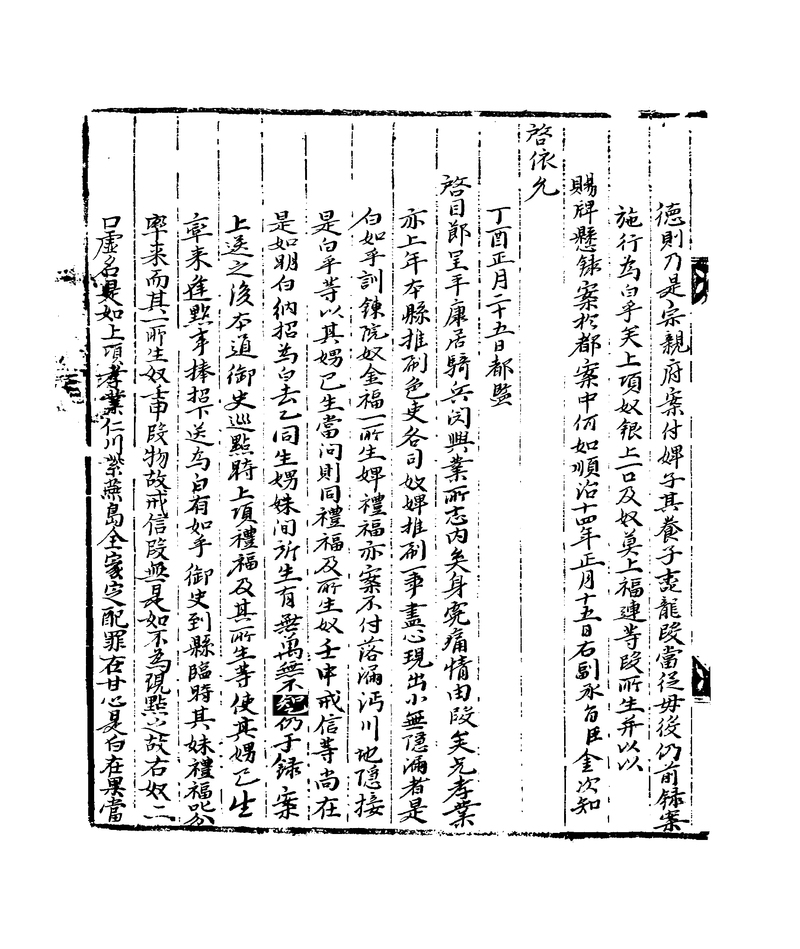 德則乃是宗親府案付婢子其養子應龍段當從母後仍前錄案
施行爲白乎矣上項奴銀上一口及奴莫上福連等段所生幷以以
賜牌懸錄案於都案中何如順治十四年正月十五日右副承旨臣金次知
啓依允
丁酉正月二十五日都監
啓目節呈平康居騎兵閔興業所志內矣身冤痛情由段矣兄孝業
亦上年本縣推刷色吏各司奴婢推刷一事盡心現出小無隱漏者是
白如乎訓鍊院奴金福一所生婢禮福亦案不付落漏沔川地隱接
是白乎等以其娚已生當問則同禮福及所生奴壬申戒信等尚在
是如明白納招爲白去乙同生娚妹間所生有無萬無不知仍于錄案
上送之後本道御史巡點時上項禮福及其所生等使其娚已生
率來進點事捧招下送爲白有如乎御史到縣臨時其妹禮福叱分
率來而其一所生奴壬申段物故戒信段無是如不爲現點以故右奴二
口虛名是如上項孝業仁川紫燕島全家定配罪在甘心是白在果當